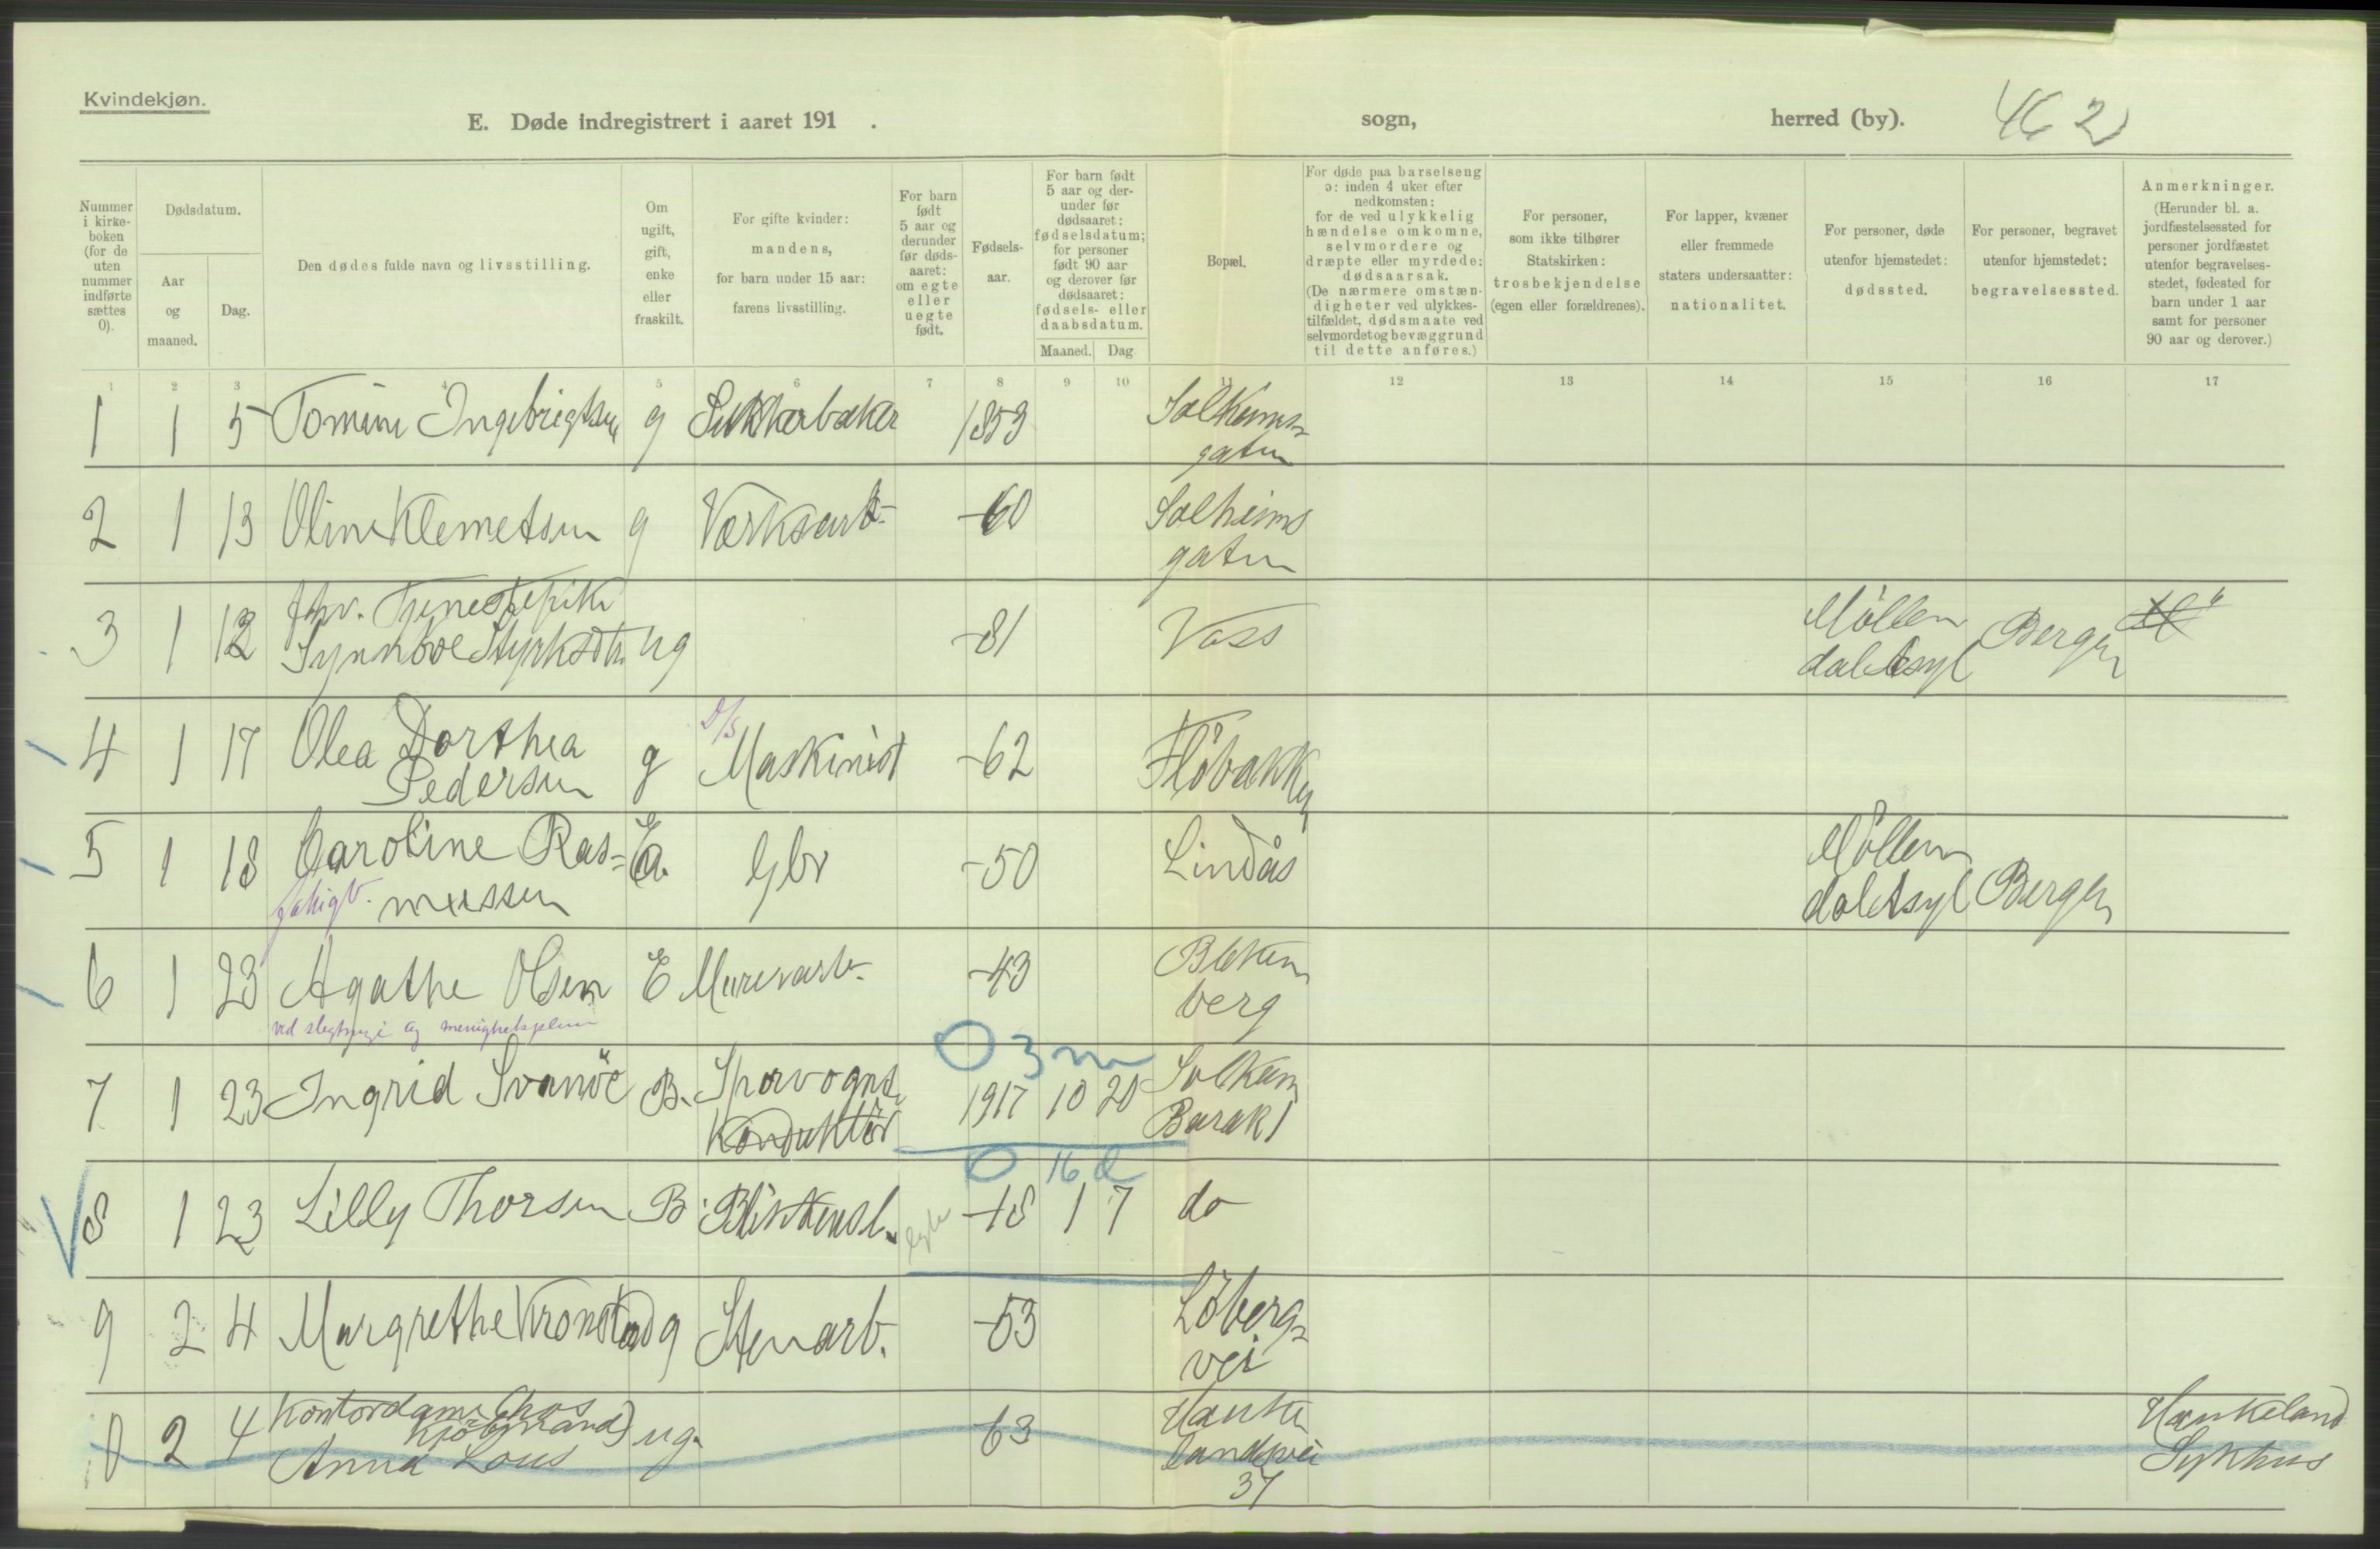 Kvindekjøn.
E. Døde indregistrert i aaret 191 . sogn, herred (by). 462
Nummer i kirke-boken (for de uten nummer indførte sættes 0).
Dødsdatum.
Aar og maaned.
Dag.
Den dødes fulde navn og livsstilling.
Om ugift, gift, enke eller fraskilt.
For gifte kvinder: mandens, for barn under 15 aar: farens livsstilling.
For barn født 5 aar og derunder før døds-aaret: om egte eller uegte født.
Fødsels-aar.
For barn født 5 aar og der-under før dødsaaret: fødselsdatum; for personer født 90 aar og derover før dødsaaret: fødsels- eller daabsdatum.
Maaned. Dag
Bopæl.
For døde paa barselseng ɔ: inden 4 uker efter nedkomsten: for de ved ulykkelig hændelse omkomne, selvmordere og dræpte eller myrdede: dødsaarsak. (De nærmere omstæn-digheter ved ulykkes-tilfældet, dødsmaate ved selvmordet og bevæggrund til dette anføres.)
For personer, som ikke tilhører Statskirken: trosbekjendelse (egen eller forældrenes).
For lapper, kvæner eller fremmede staters undersaatter: nationalitet.
For personer, døde utenfor hjemstedet: dødssted.
For personer, begravet utenfor hjemstedet: begravelsessted.
Anmerkninger. (Herunder bl. a. jordfæstelsessted for personer jordfæstet utenfor begravelses-stedet, fødested for barn under 1 aar samt for personer 90 aar og derover.)
1 2 3 4 5 6 7 8 9 10 11 12 13 14 15 16 17
1 1 5 Tomine Ingebrigtsen g Sukkerbaker 1853 Solheims-
gaten
2 1 13 Oline Klemetsen g Værksarb. -60 Solheims
gaten
fhv. Tjenestepike
3 1 12 Synnöve Styrksdtr. ug -81 Voss Möllen
dal Asyl Bergen
D/S
4 1 17 Olea Dorthea g Maskinist -62 Flöbakken
Pedersen
5 1 18 Caroline Ras= E Gbr -50 Lindås Möllen
mussen dal Asyl Bergen
6 1 23 Agathe Olsen E Murerarb. -43 Bleken
berg
ved slegtninge og menighetspleien
0 3 m
7 1 23 Ingrid Svanöe B. Sporvogns- 1917 10 20 Solheim
Konduktör Barak 1
0 16 d
8 1 23 Lilly Thorsen B Blikkensl. egte -18 1 7 do
9 2 4 Margrethe Kronstad g Stenarb. -53 Löbergs-
vei
Kontordame (hos
Kjöbmand)
0 2 4 Anna Lous ug. -63 Hauke
landsvei
37
Haukeland
Sykhus